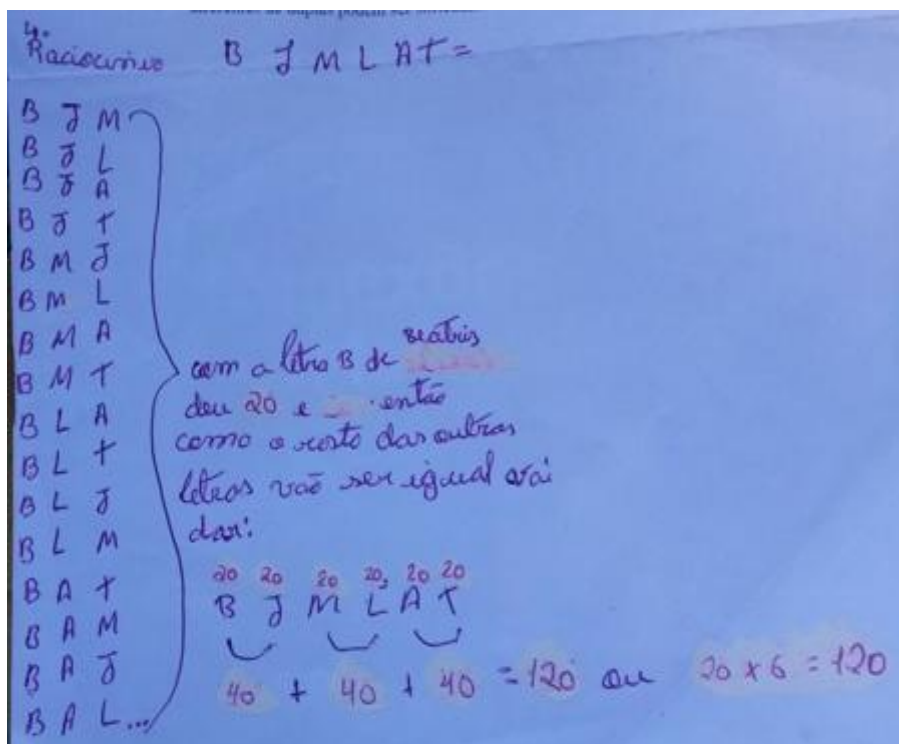 4.
Raciocinio B J M L A T =
B J M
B J L
B J A
B J T
B M J
B M L
B M A
B M T
B L A
B L T
B L J
B L M
B A T
B A M
B A J
B A L...
com a letra B de Beatris
deu 20 e então
como o resto das outras
letras vão ser igual vai
dar:
20 20 20 20, 20 20
B J M L A T
40 + 40 + 40 = 120 ou 20 x 6 = 120